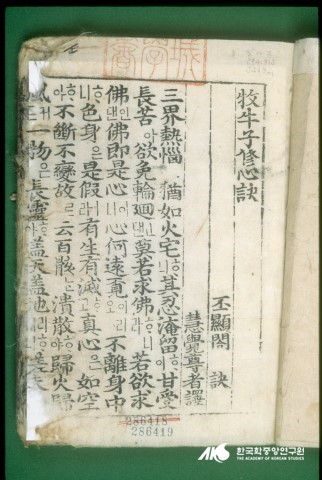 牧牛子修心訣
丕顯閤 訣
慧覺尊者譯
三界熱惱ㅣ 猶如火宅ᄒᆞ니 其忍淹留ᄒᆞ야 甘受
長苦아 欲免輪廻ᅟᅵᆫ댄 莫若求佛이니 若欲求
佛인댄 佛即是心이니 心何遠覓이리오 不離身中
ᄒᆞ니 色身은 是假ㅣ라 有生有滅ᄒᆞ고 真心은 如空
ᄒᆞ야 不斷不變故로 云百骸ᄂᆞᆫ 潰散ᄒᆞ야 歸火歸
風호ᄃᆡ 一物은 長靈ᄒᆞ야 盖天盖地라ᄒᆞ니 嗟夫
286418
286419
AKS 한국학중앙연구원
THE ACADEMY OF KOREAN STUDIES